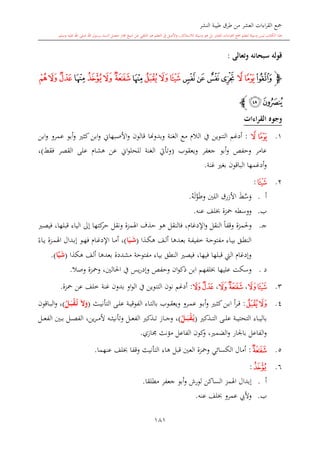 جمع القراءات العشر من طرق طيبة النشر
قوله سبحانه وتعالى :
﴿ وَاتَّقُوا يَوْمًا لَا تَجْزِي نَفْسٌ عَن نَّفْسٍ شَيْئًا وَلَا يُقْبَلُ مِنْهَا شَفَاعَةٌ وَلَا يُؤْخَذُ مِنْهَا عَدْلٌ وَلَا هُمْ
يُنصَرُونَ ٤٨ ﴾
وجوه القراءات
١. يَوْمًا لَا : أدغم التنوين في اللام مع الغنة وبدونها قالون والأصبهاني وابن كثير وأبو عمرو وابن
عامر وحفص وأبو جعفر ويعقوب (وتأتي الغنة للحلواني عن هشام على القصر فقط)،
وأدغمها الباقون بغير غنة.
٢. شَيْئًا :
أ . وَسَّطَ الأزرق اللين وطَوَّلَهُ.
ب. ووسطه حمزة بخلف عنه.
جـ. ولحمزة وقفاً النقل والإدغام، فالنقل هو حذف الهمزة ونقل حركتها إلى الياء قبلها، فيصير
النطق بياء مفتوحة خفيفة بعدها ألف هكذا (شَيَا)، أما الإدغام فهو إبدال الهمزة ياءً
وإدغام التي قبلها فيها، فيصير النطق بياء مفتوحة مشددة بعدها ألف هكذا (شَيَّا).
د . وسكت عليها بخلفهم ابن ذكوان وحفص وإدريس في الحالين، وحمزة وصلا.
٣. شَيْئًا وَلَا، شَفَاعَةٌ وَلَا، عَدْلٌ وَلَا: أدغم نون التنوين في الواو بدون غنة خلف عن حمزة.
٤. وَلَا يُقْبَلُ: قرأ ابن كثير وأبو عمرو ويعقوب بالتاء الفوقية على التأنيث (وَلَا تُقْبَلُ)، والباقون
بالياء التحتية على التذكير (وَلَا يُقْبَلُ)، وجاز تذكير الفعل وتأنيثه لأمرين، الفصل بين الفعل
والفاعل بالجار والضمير، وكون الفاعل مؤنث مجازي.
٥. شَفَاعَةٌ: أمال الكسائي وحمزة العين قبل هاء التأنيث وقفا بخلف عنهما.
٦. يُؤْخَذُ :
أ . إبدال الهمز الساكن لورش وأبو جعفر مطلقا.
ب. ولأبي عمرو بخلف عنه.
١٨١